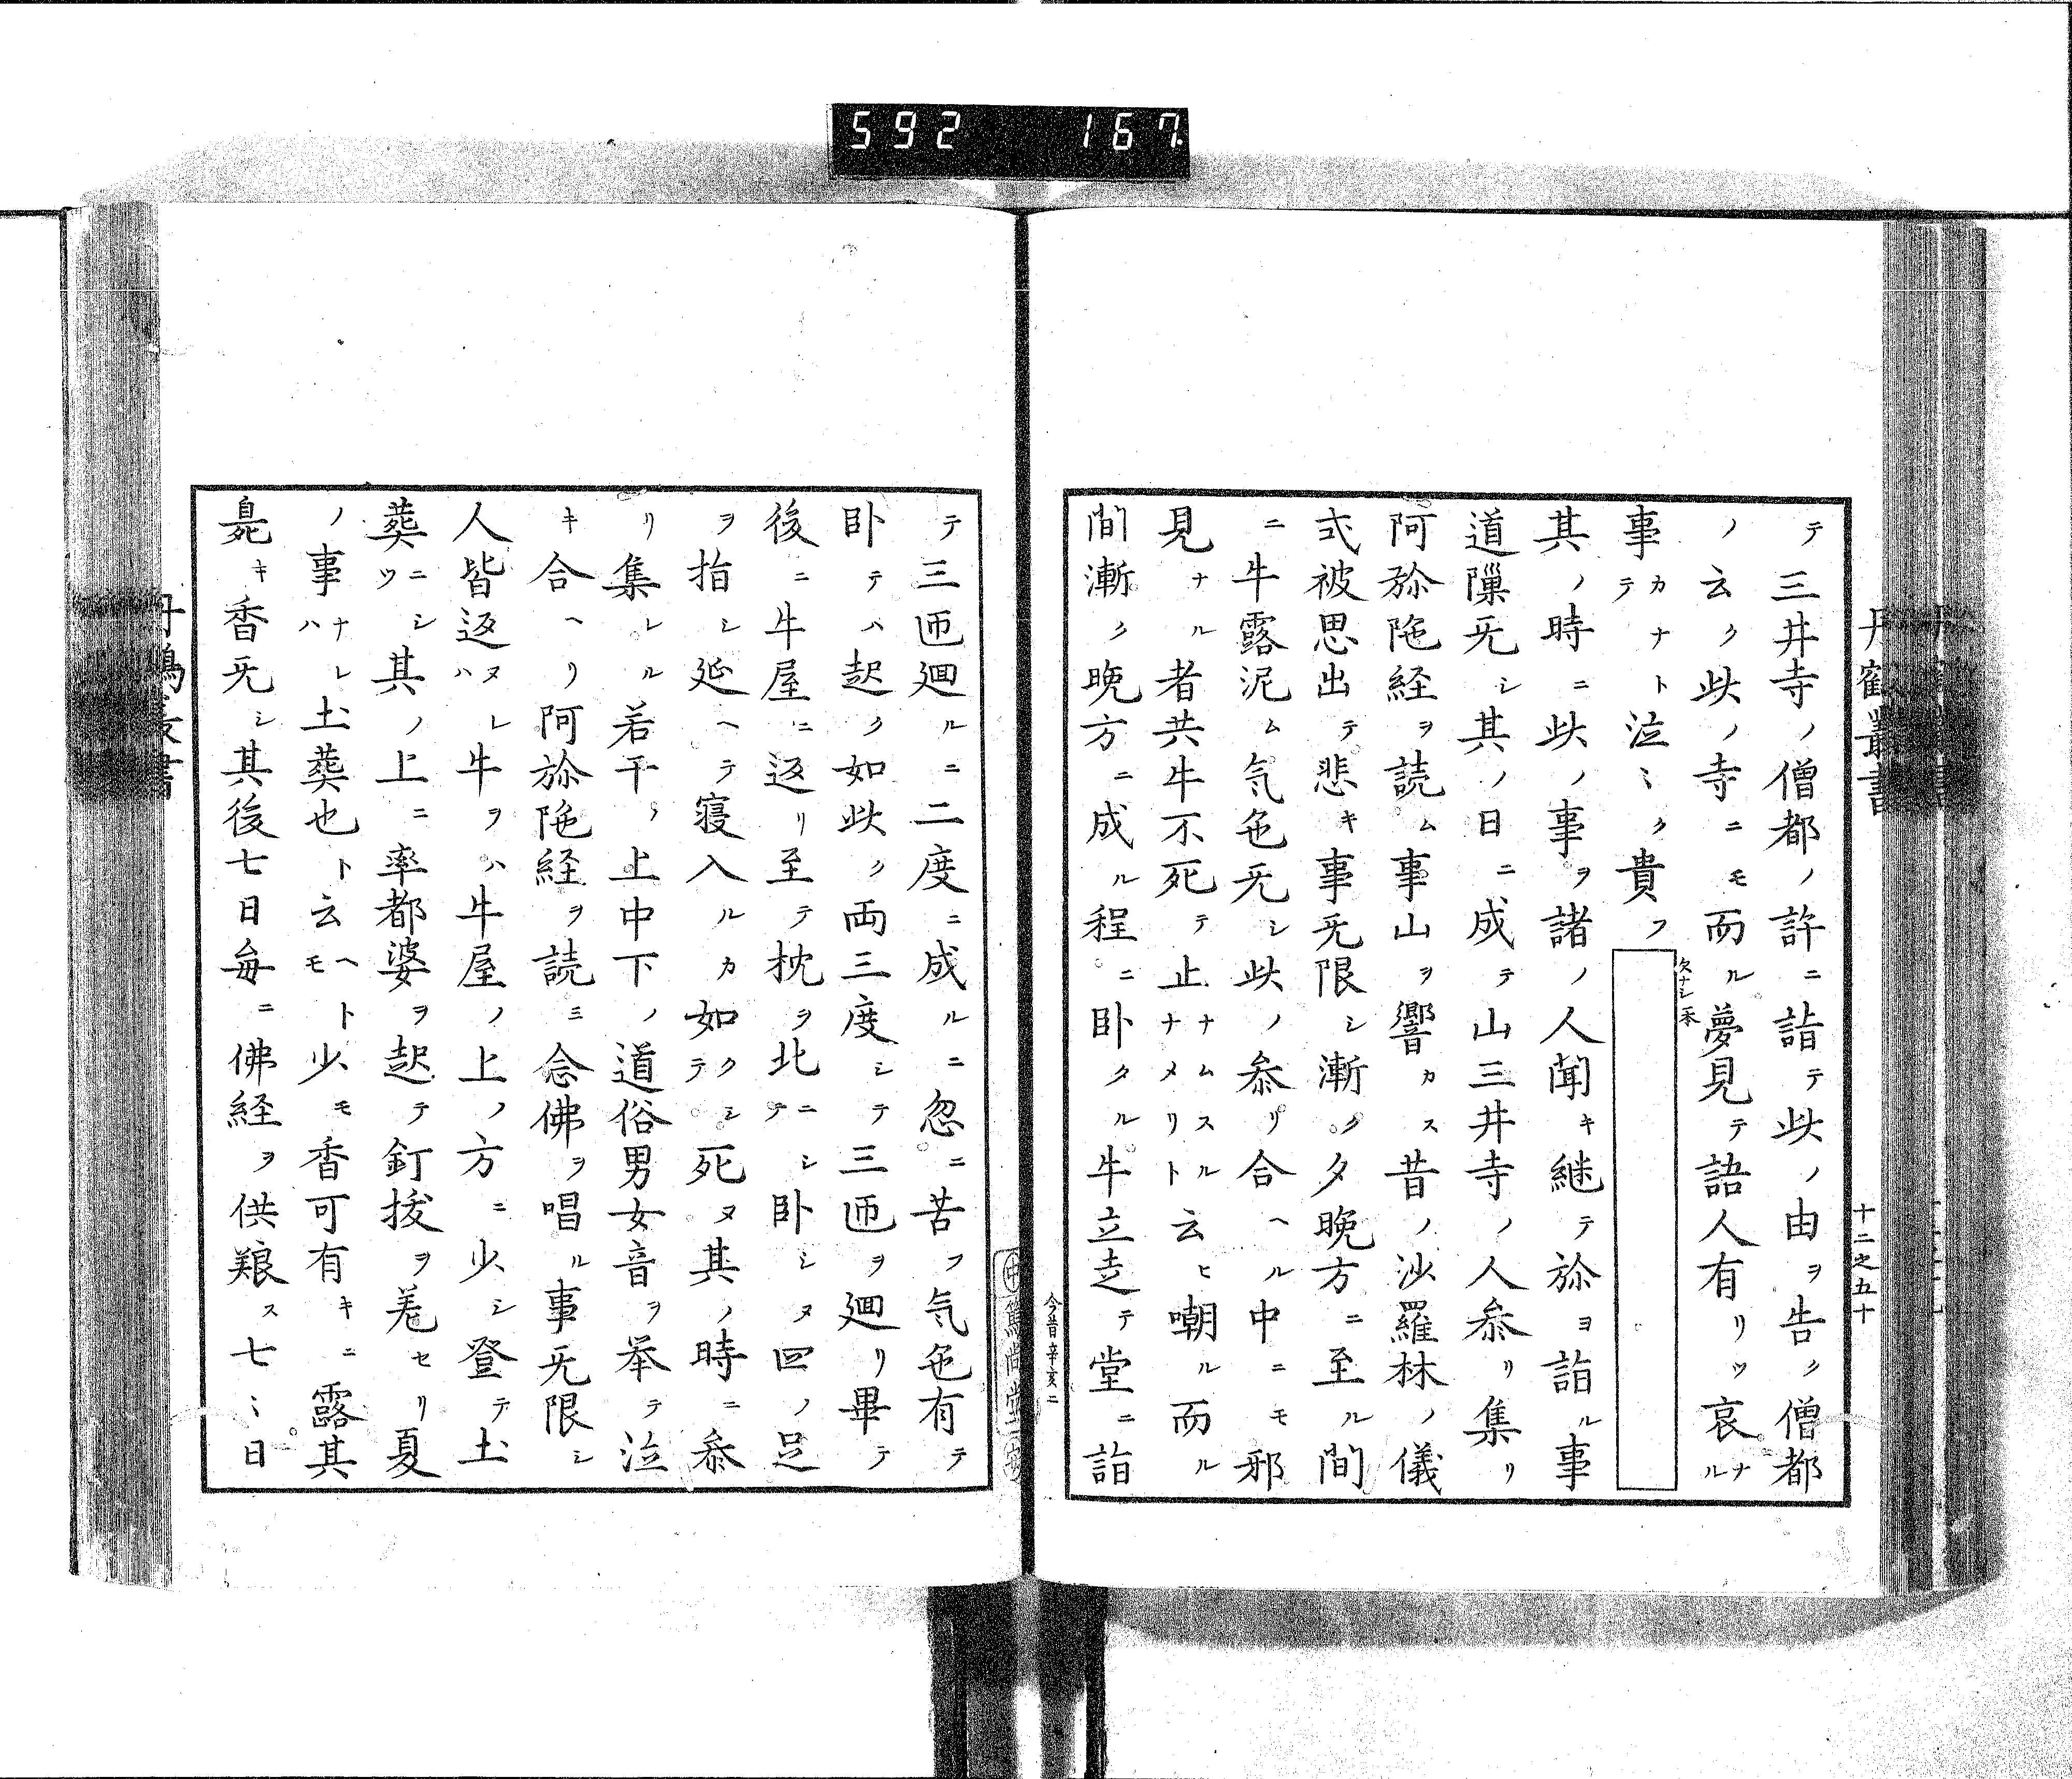 592 167
丹鶴叢書
十二之五十
テ三井寺ノ僧都ノ許ニ詣テ此ノ由ヲ告ク僧都
ノ云ク此ノ寺ニモ而ル夢見テ語人有リツ哀ナル
欠ナシ一本
事カナトテ泣ミク貴フ
其ノ時ニ此ノ事ヲ諸ノ人聞キ継テ弥ヨ詣ル事
道隟旡シ其ノ日ニ成テ山三井寺ノ人参リ集リ
阿弥陁経ヲ読ム事山ヲ響カス昔ノ沙羅林ノ儀
式被思出テ悲キ事旡限シ漸ク夕晩方ニ至ル間
ニ牛露泥ム気色旡シ此ノ参リ合ヘル中ニモ邪
見ナル者共牛不死テ止ナムスルナメリト云ヒ嘲ル而ル
間漸ク晩方ニ成ル程ニ卧タル牛立走テ堂ニ詣
今昔辛亥ニ
テ三匝廻ルニ二度ニ成ルニ忽ニ苦フ気色有テ
卧テハ起ク如此ク両三度シテ三匝ヲ廻リ畢テ
後ニ牛屋ニ返リ至テ枕ヲ北ニシテ卧シヌ四ノ足
ヲ指シ延ヘテ寝入ルカ如クシテ死ヌ其ノ時ニ参
リ集レル若干ノ上中下ノ道俗男女音ヲ挙テ泣
キ合ヘリ阿弥陁経ヲ読ミ念佛ヲ唱ル事旡限シ
人皆返ヌレハ牛ヲハ牛屋ノ上ノ方ニ少シ登テ土
葬ニシツ其ノ上ニ率都婆ヲ起テ釘抜ヲ差セリ夏
ノ事ナレハ土葬也ト云ヘトモ少モ香可有キニ露其
臰キ香旡シ其後七日毎ニ佛経ヲ供飬ス七ミ日
丹鶴叢書